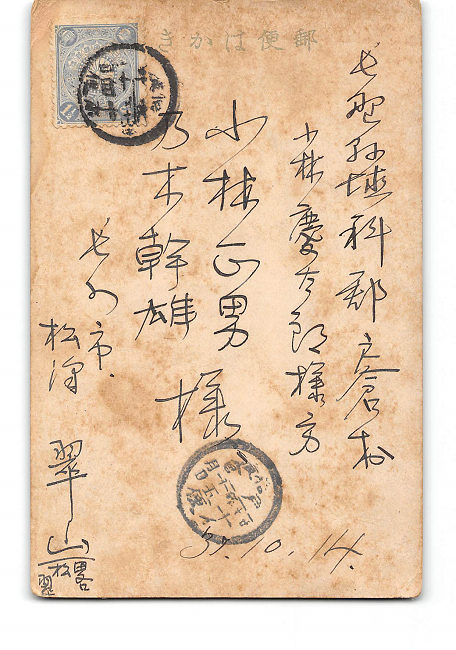 郵便はかき
長野縣埴科郡戸倉村
小林慶太郎様方
小林正男
乃木幹雄
様
長野市
松澤
翠山
37.10.14.